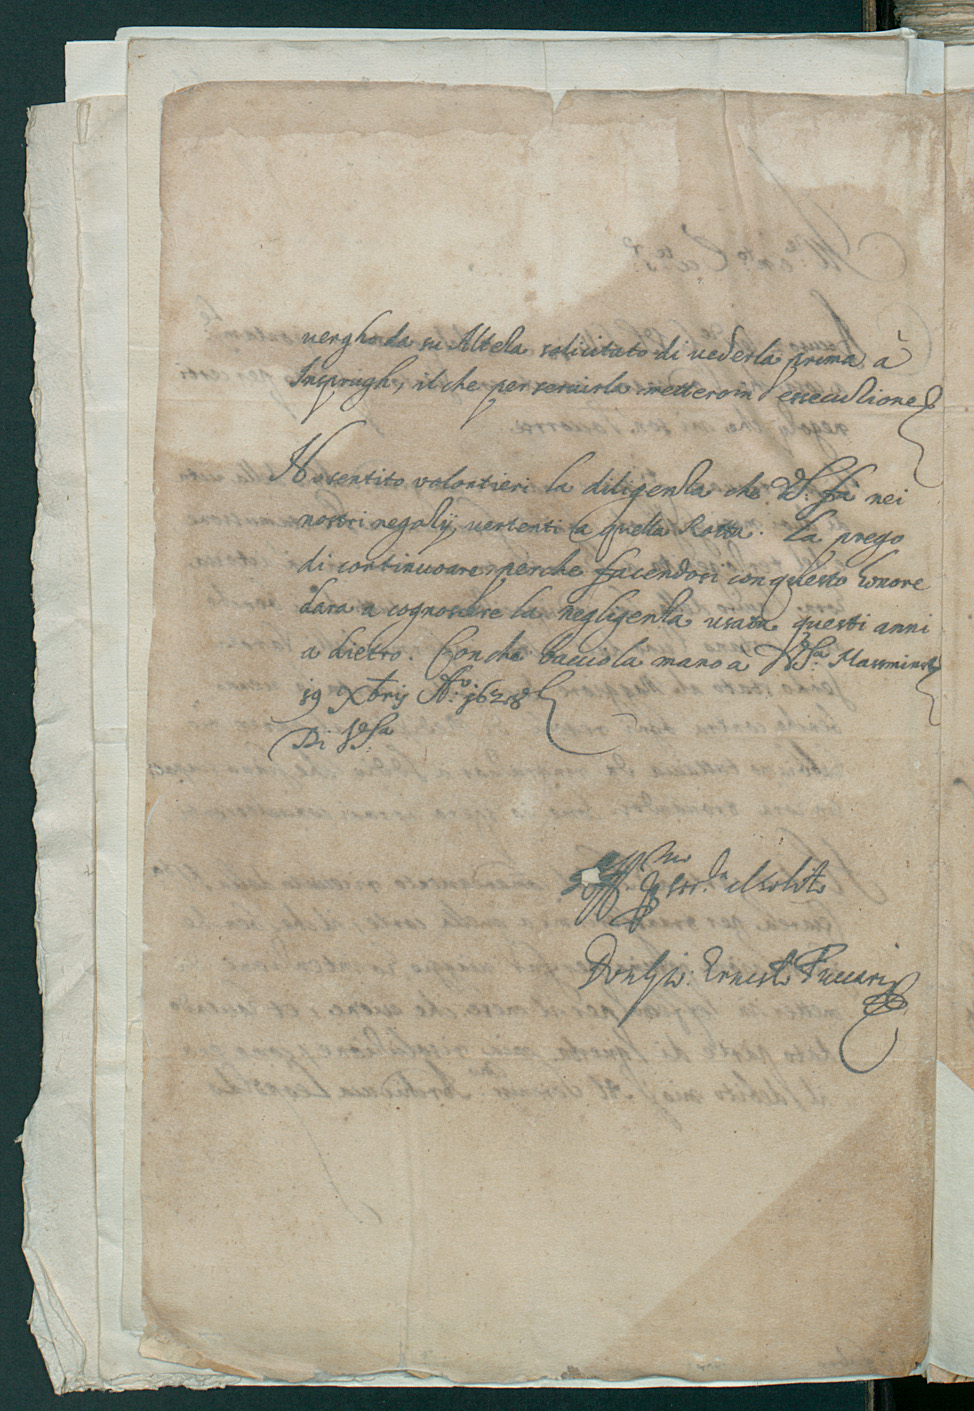 vengho da su Altezza solicitato di vederla prima à
Insprugh, il che per servirla metterò in essecuzione
Ho sentito volontieri la diligenza che V.S. fa nei
nostri negozij, vertenti a quella Rotta. La prego
di continuoare, perche facendosi con questo honore
dara a cognoscere la negligenza usata questi anni
a dietro. Con che baccio la mano a V.S.ra Massminster
19 Xbrij A.o 1628
Di V.S.ra
Aff.mo per ser.la
Don Ernesto